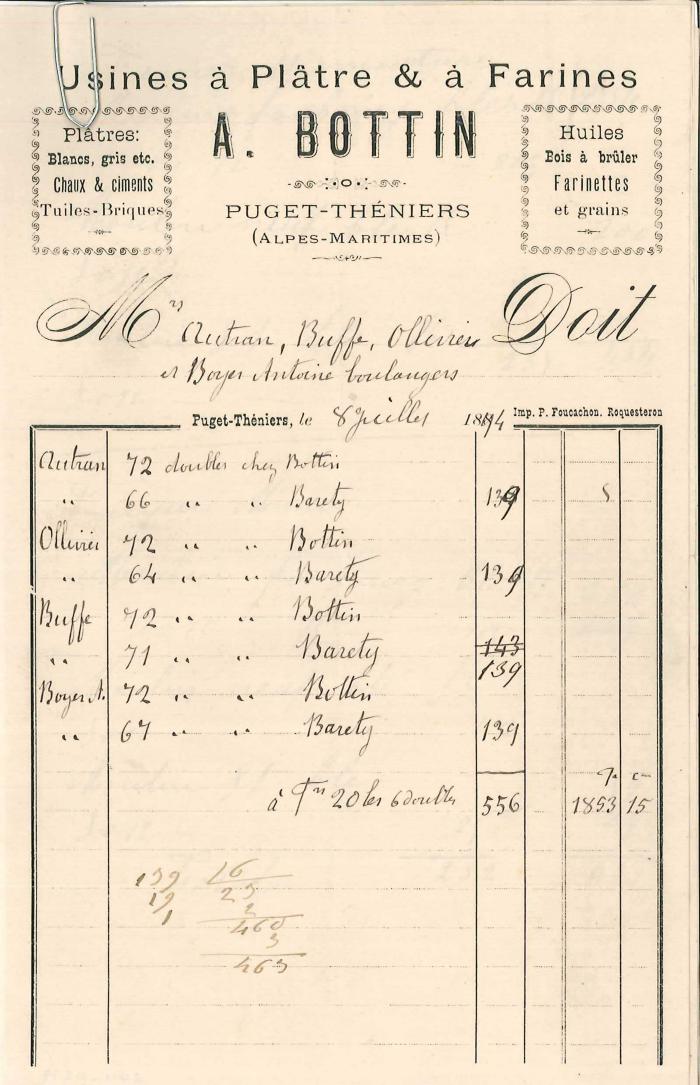 Usines à Plâtre & à Farines
A. BOTTIN
Plâtres:
Blancs, gris etc.
Chaux & ciments
Tuiles-Briques
Huiles
Bois à brûler
Farinettes
et grains
PUGET-THÉNIERS
(ALPES-MARITIMES)
Mrs Autran, Buffe, Ollivier Doit
et Boyer Antoine boulangers
Puget-Théniers, le 8 Juillet 1894
Imp. P. Foucachon. Roquesteron
Autran 72 doubles chez Bottin
" 66 " " Barety 139
Ollivier 72 " " Bottin
" 64 " " Barety 139
Buffe 72 " " Bottin
" 71 " " Barety 143
139
Boyer A. 72 " " Bottin
" 67 " " Barety 139
f c
à Frs 20 les 6 doubles 556 1853 15
139 16
19 23
1 2
460
3
463